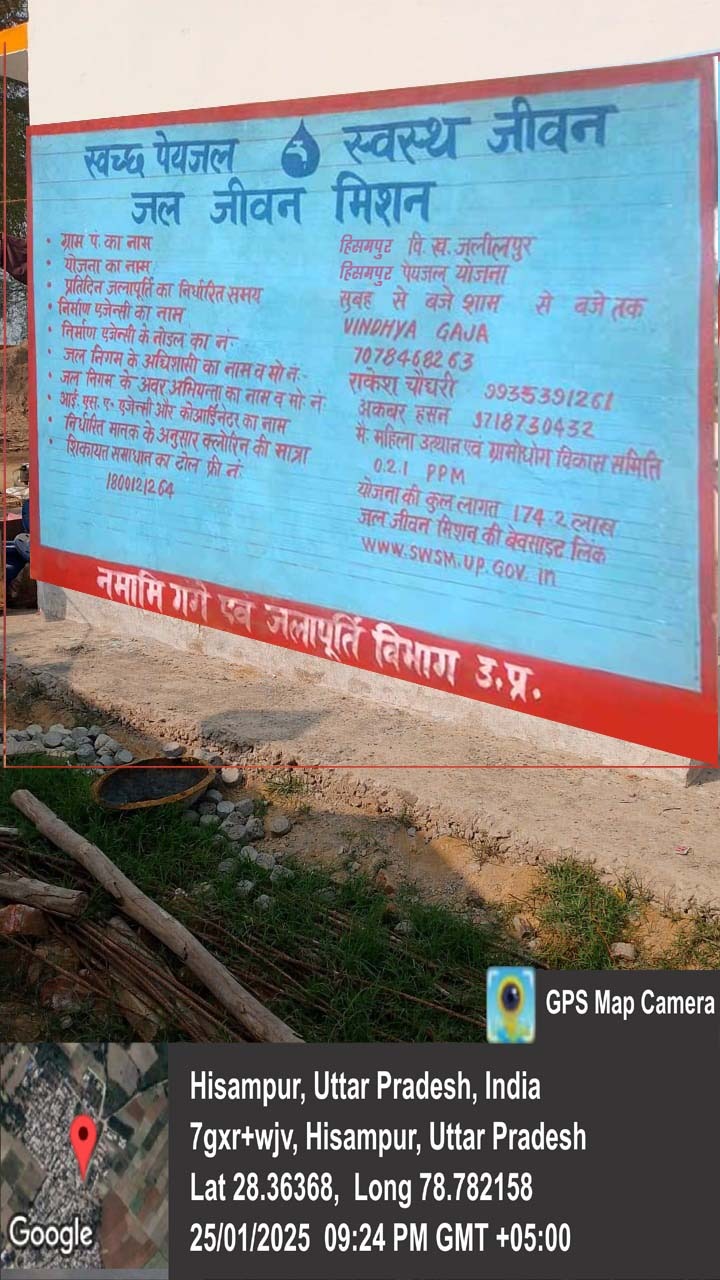 स्वच्छ पेयजल स्वस्थ जीवन
जल जीवन मिशन
• ग्राम पं. का नाम
• योजना का नाम
• प्रतिदिन जलापूर्ति का निर्धारित समय
• निर्माण एजेन्सी का नाम
• निर्माण एजेन्सी के नोडल का नं-
• जल निगम के अधिशासी का नाम व मो नं.-
• जल निगम के अवर अभियन्ता का नाम व मो नं
• आई. एस. ए. एजेन्सी और कोआर्डिनेटर का नाम
• निर्धारित मानक के अनुसार क्लोरिन की मात्रा
• शिकायत समाधान का टोल फ्री नं.
1800121264
हिसमपुर वि. ख. जलीलपुर
हिसमपुर पेयजल योजना
सुबह से बजे शाम से बजे तक
VINDHYA GAJA
7078468263
राकेश चौघरी 9935391261
अकबर हसन 9718730432
मै. महिला उत्थान एवं ग्रामोधोग विकास समिति
0.2.1 PPM
योजना की कुल लागत 174.2 लाख
जल जीवन मिशन की बेवसाइट लिंक
www.swsm.up.gov.in
नमामि गंगे एवं जलापूर्ति विभाग उ.प्र.
GPS Map Camera
Hisampur, Uttar Pradesh, India
7gxr+wjv, Hisampur, Uttar Pradesh
Lat 28.36368, Long 78.782158
25/01/2025 09:24 PM GMT +05:00
Google